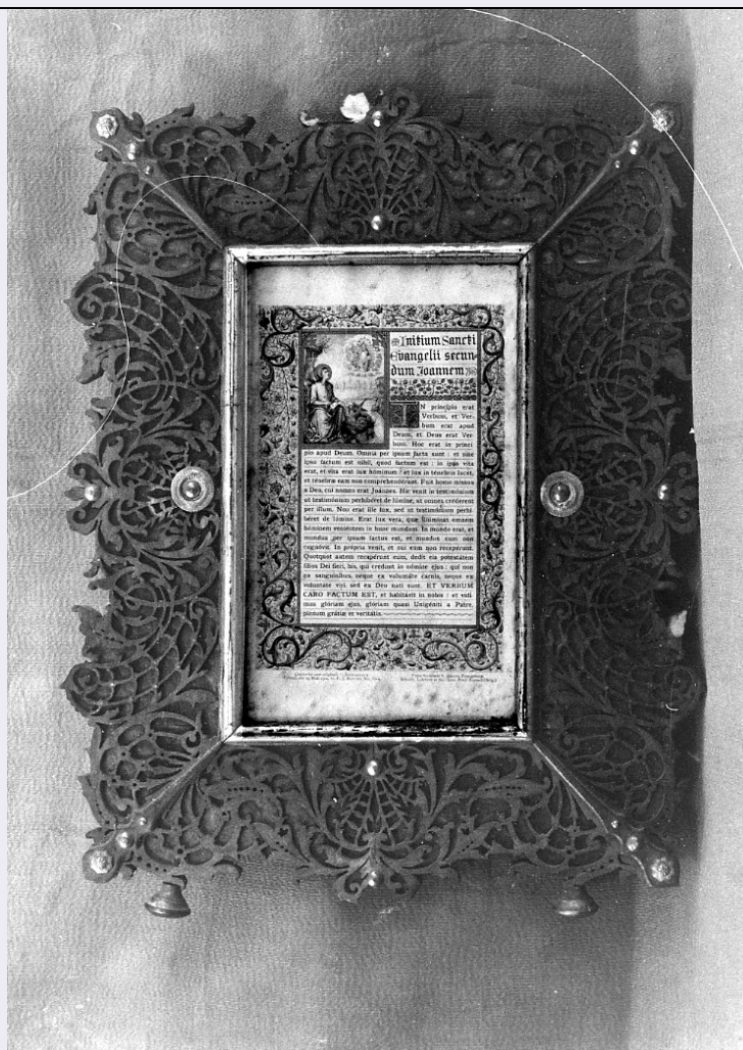 Initium Sancti
Evangelii secun-
dum Joannem
IN principio erat
Verbum, et Ver-
bum erat apud
Deum, et Deus erat Ver-
bum. Hoc erat in princi-
pio apud Deum. Omnia per ipsum facta sunt : et sine
ipso factum est nihil, quod factum est : in ipso vita
erat, et vita erat lux hóminum : et lux in ténebris lucet,
et ténebræ eam non comprehendérunt. Fuit homo missus
a Deo, cui nomen erat Joánnes. Hic venit in testimónium
ut testimónium perhibéret de lúmine, ut omnes créderent
per illum. Non erat ille lux, sed ut testimónium perhi-
béret de lúmine. Erat lux vera, quæ illúminat omnem
hóminem veniéntem in hunc mundum. In mundo erat, et
mundus per ipsum factus est, et mundus eum non
cognóvit. In própria venit, et sui eum non recepérunt.
Quotquot autem recepérunt eum, dedit eis potestátem
fílios Dei fíeri, his, qui credunt in nómine ejus : qui non
ex sanguínibus, neque ex voluntáte carnis, neque ex
voluntáte viri, sed ex Deo nati sunt. ET VERBUM
CARO FACTUM EST, et habitávit in nobis : et vidi-
mus glóriam ejus, glóriam quasi Unigéniti a Patre,
plenum grátiæ et veritátis.